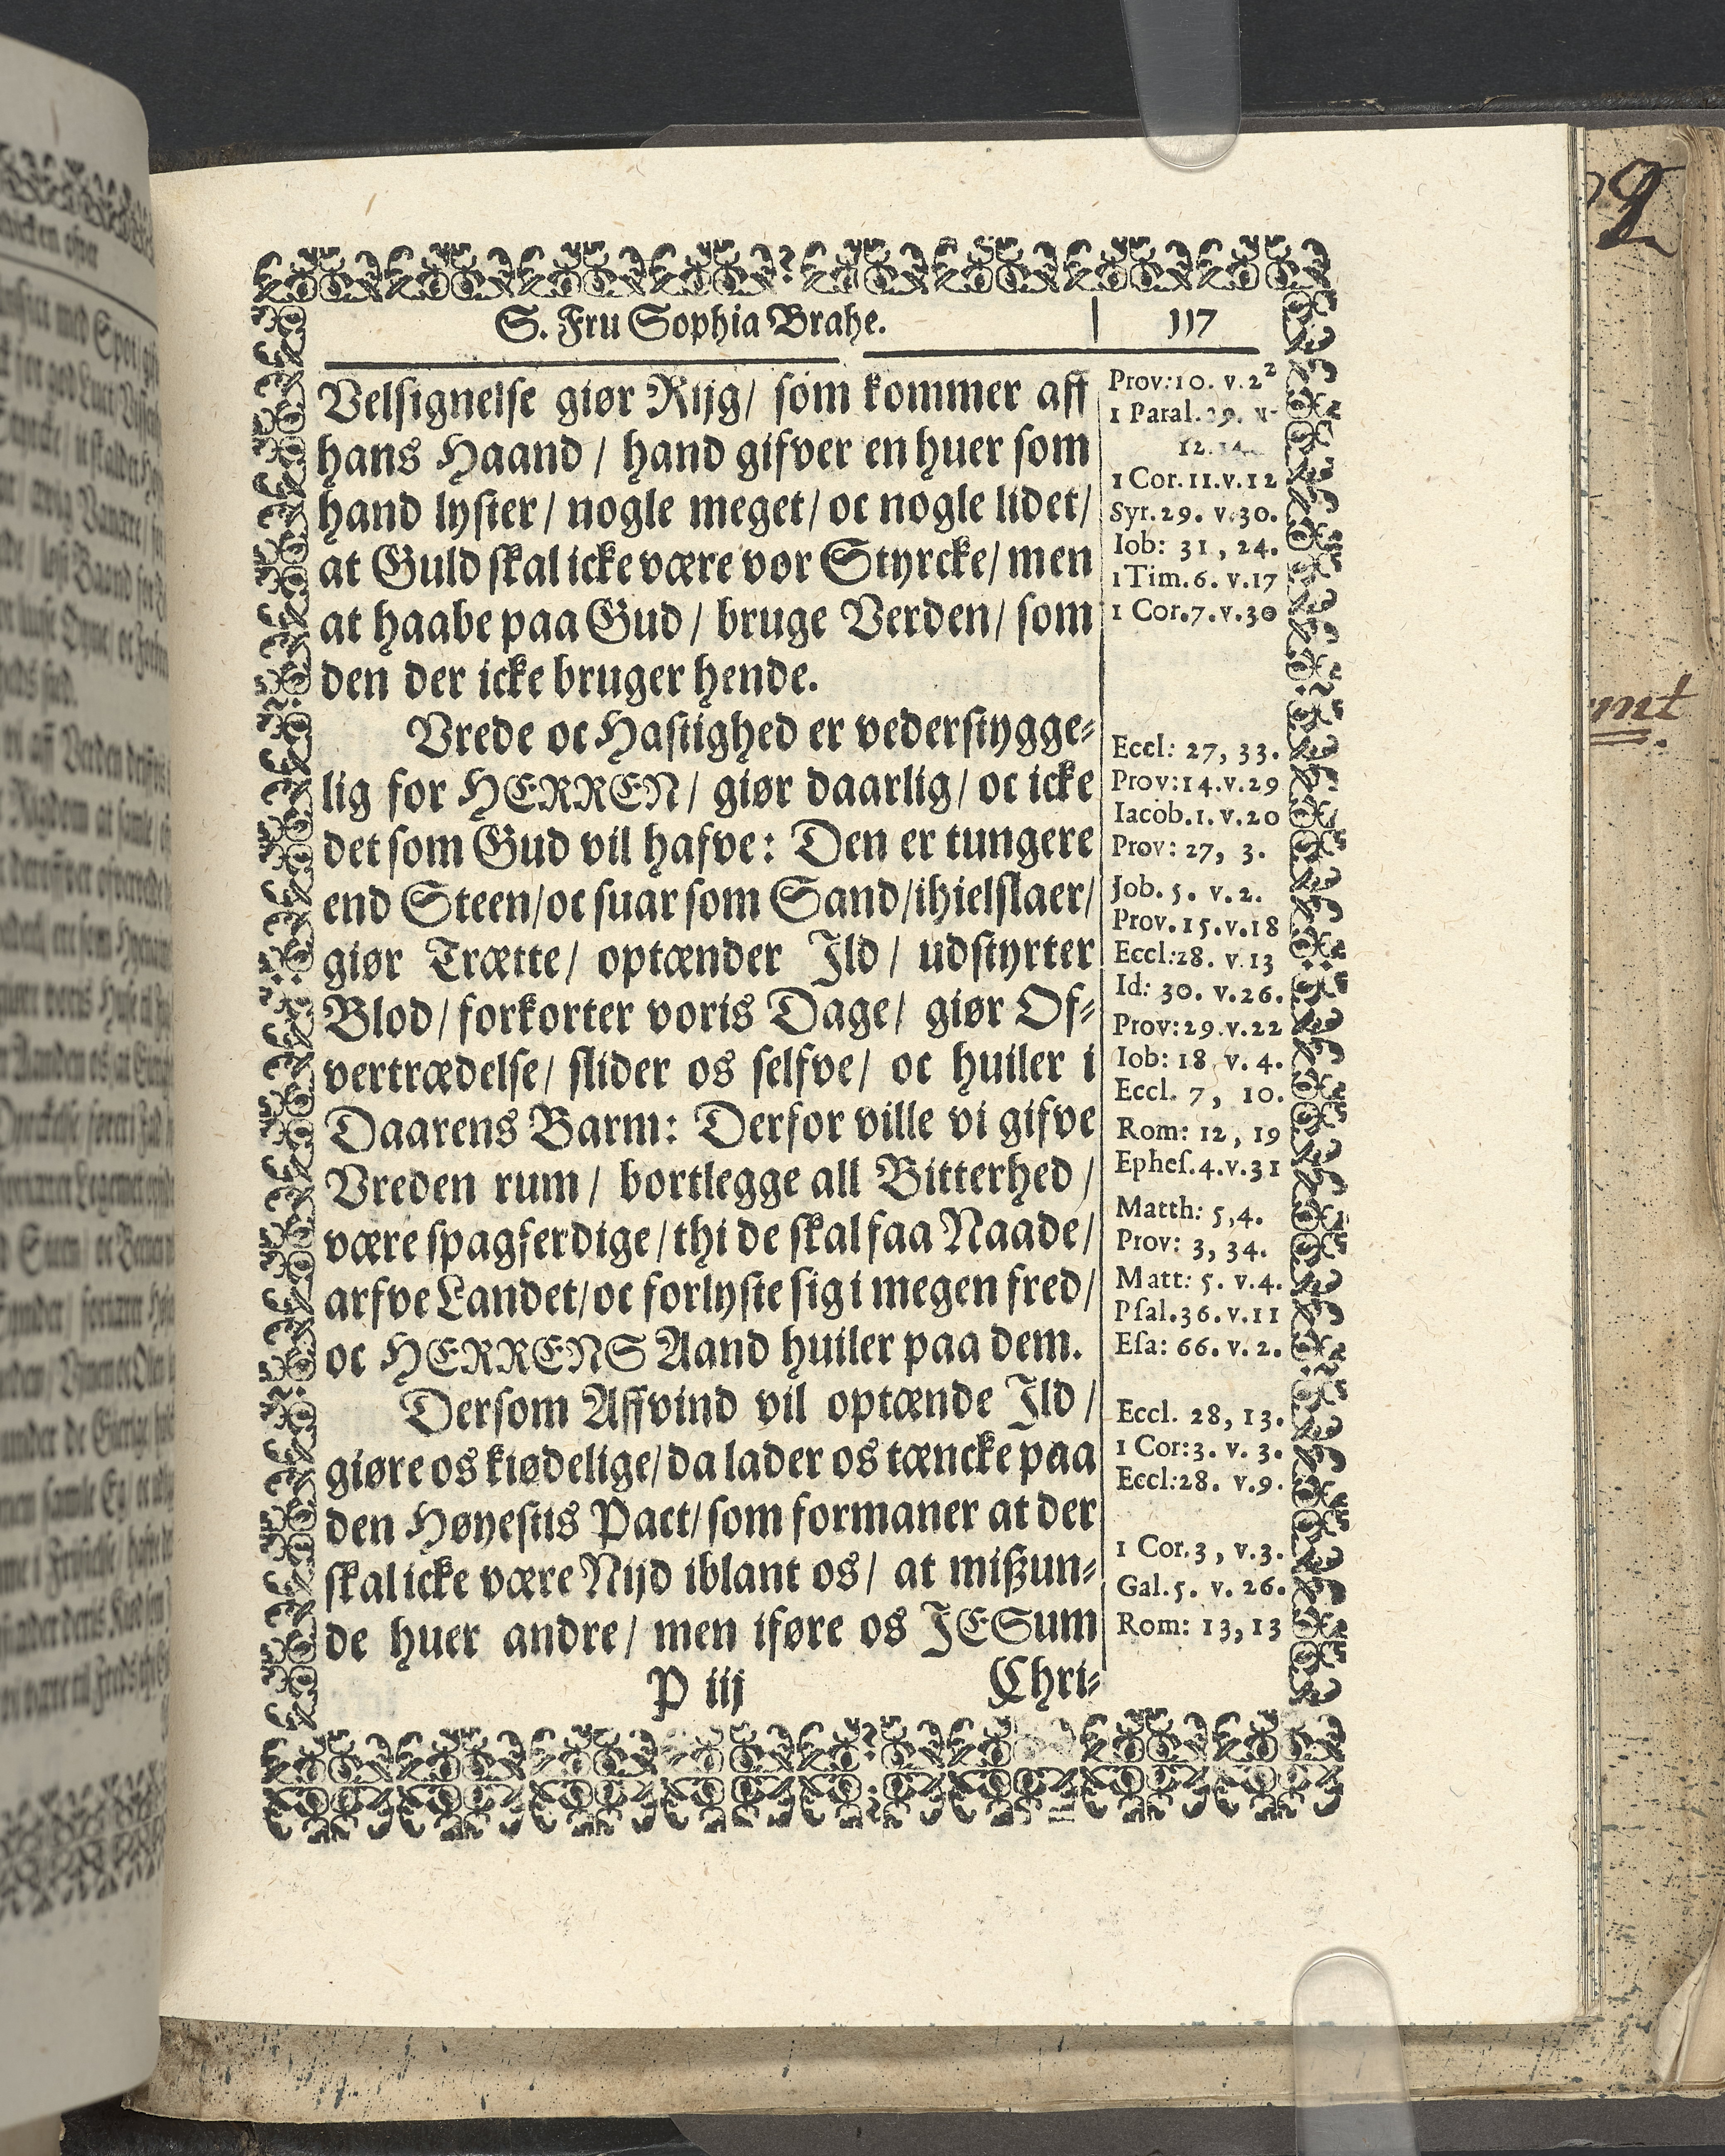 S. Fru Sophia Brahe.
117
Velsignelse giør Rijg/ som kommer aff
hans Haand / hand gifver en huer som
hand lyster/ nogle meget/ oc nogle lidet/
at Guld skal icke være vor Styrcke/ men
at haabe paa Gud / bruge Verden/ som
den der icke bruger hende.
Vrede oc Hastighed er vederstygge-
lig for HERREN/ giør daarlig/ oc icke
det som Gud vil hafve: Den er tungere
end Steen/oc suar som Sand/ihielslaer/
giør Trætte/ optænder Ild/ udstyrter
Blod/ forkorter voris Dage/ giør Of-
vertrædelse/ slider os selfve/ oc huiler i
Daarens Barm: Derfor ville vi gifve
Vreden rum / bortlegge all Bitterhed /
være spagferdige/thi de skal faa Naade/
arfve Landet/oc forlyste sig i megen fred/
oc HERRENS Aand huiler paa dem.
Dersom Affvind vil optænde Ild /
giøre os kiødelige/da lader os tæncke paa
den Høyestis Pact/som formaner at der
skal icke være Nijd iblant os/ at mißun-
de huer andre/ men iføre os JESum
P iij
Chri-
Prov:10. v.22
1 Paral.29. v-
12.14.
1 Cor.11.v.12
Syr.29. v.30.
Iob: 31, 24.
1 Tim.6. v.17
1 Cor.7.v.30
Eccl: 27, 33.
Prov:14.v.29
Iacob.1.v.20
Prov: 27, 3.
Job. 5. v.2.
Prov.15.v.18
Eccl:28. v.13
Id: 30. v.26.
Prov:29.v.22
Iob: 18 v. 4.
Eccl. 7, 10.
Rom: 12, 19
Ephes.4.v.31
Matth: 5,4.
Prov: 3, 34.
Matt: 5. v.4.
Psal.36.v.11
Esa: 66. v. 2.
Eccl. 28, 13.
1 Cor:3. v. 3.
Eccl:28. v.9.
1 Cor.3, v.3.
Gal.5. v. 26.
Rom: 13, 13